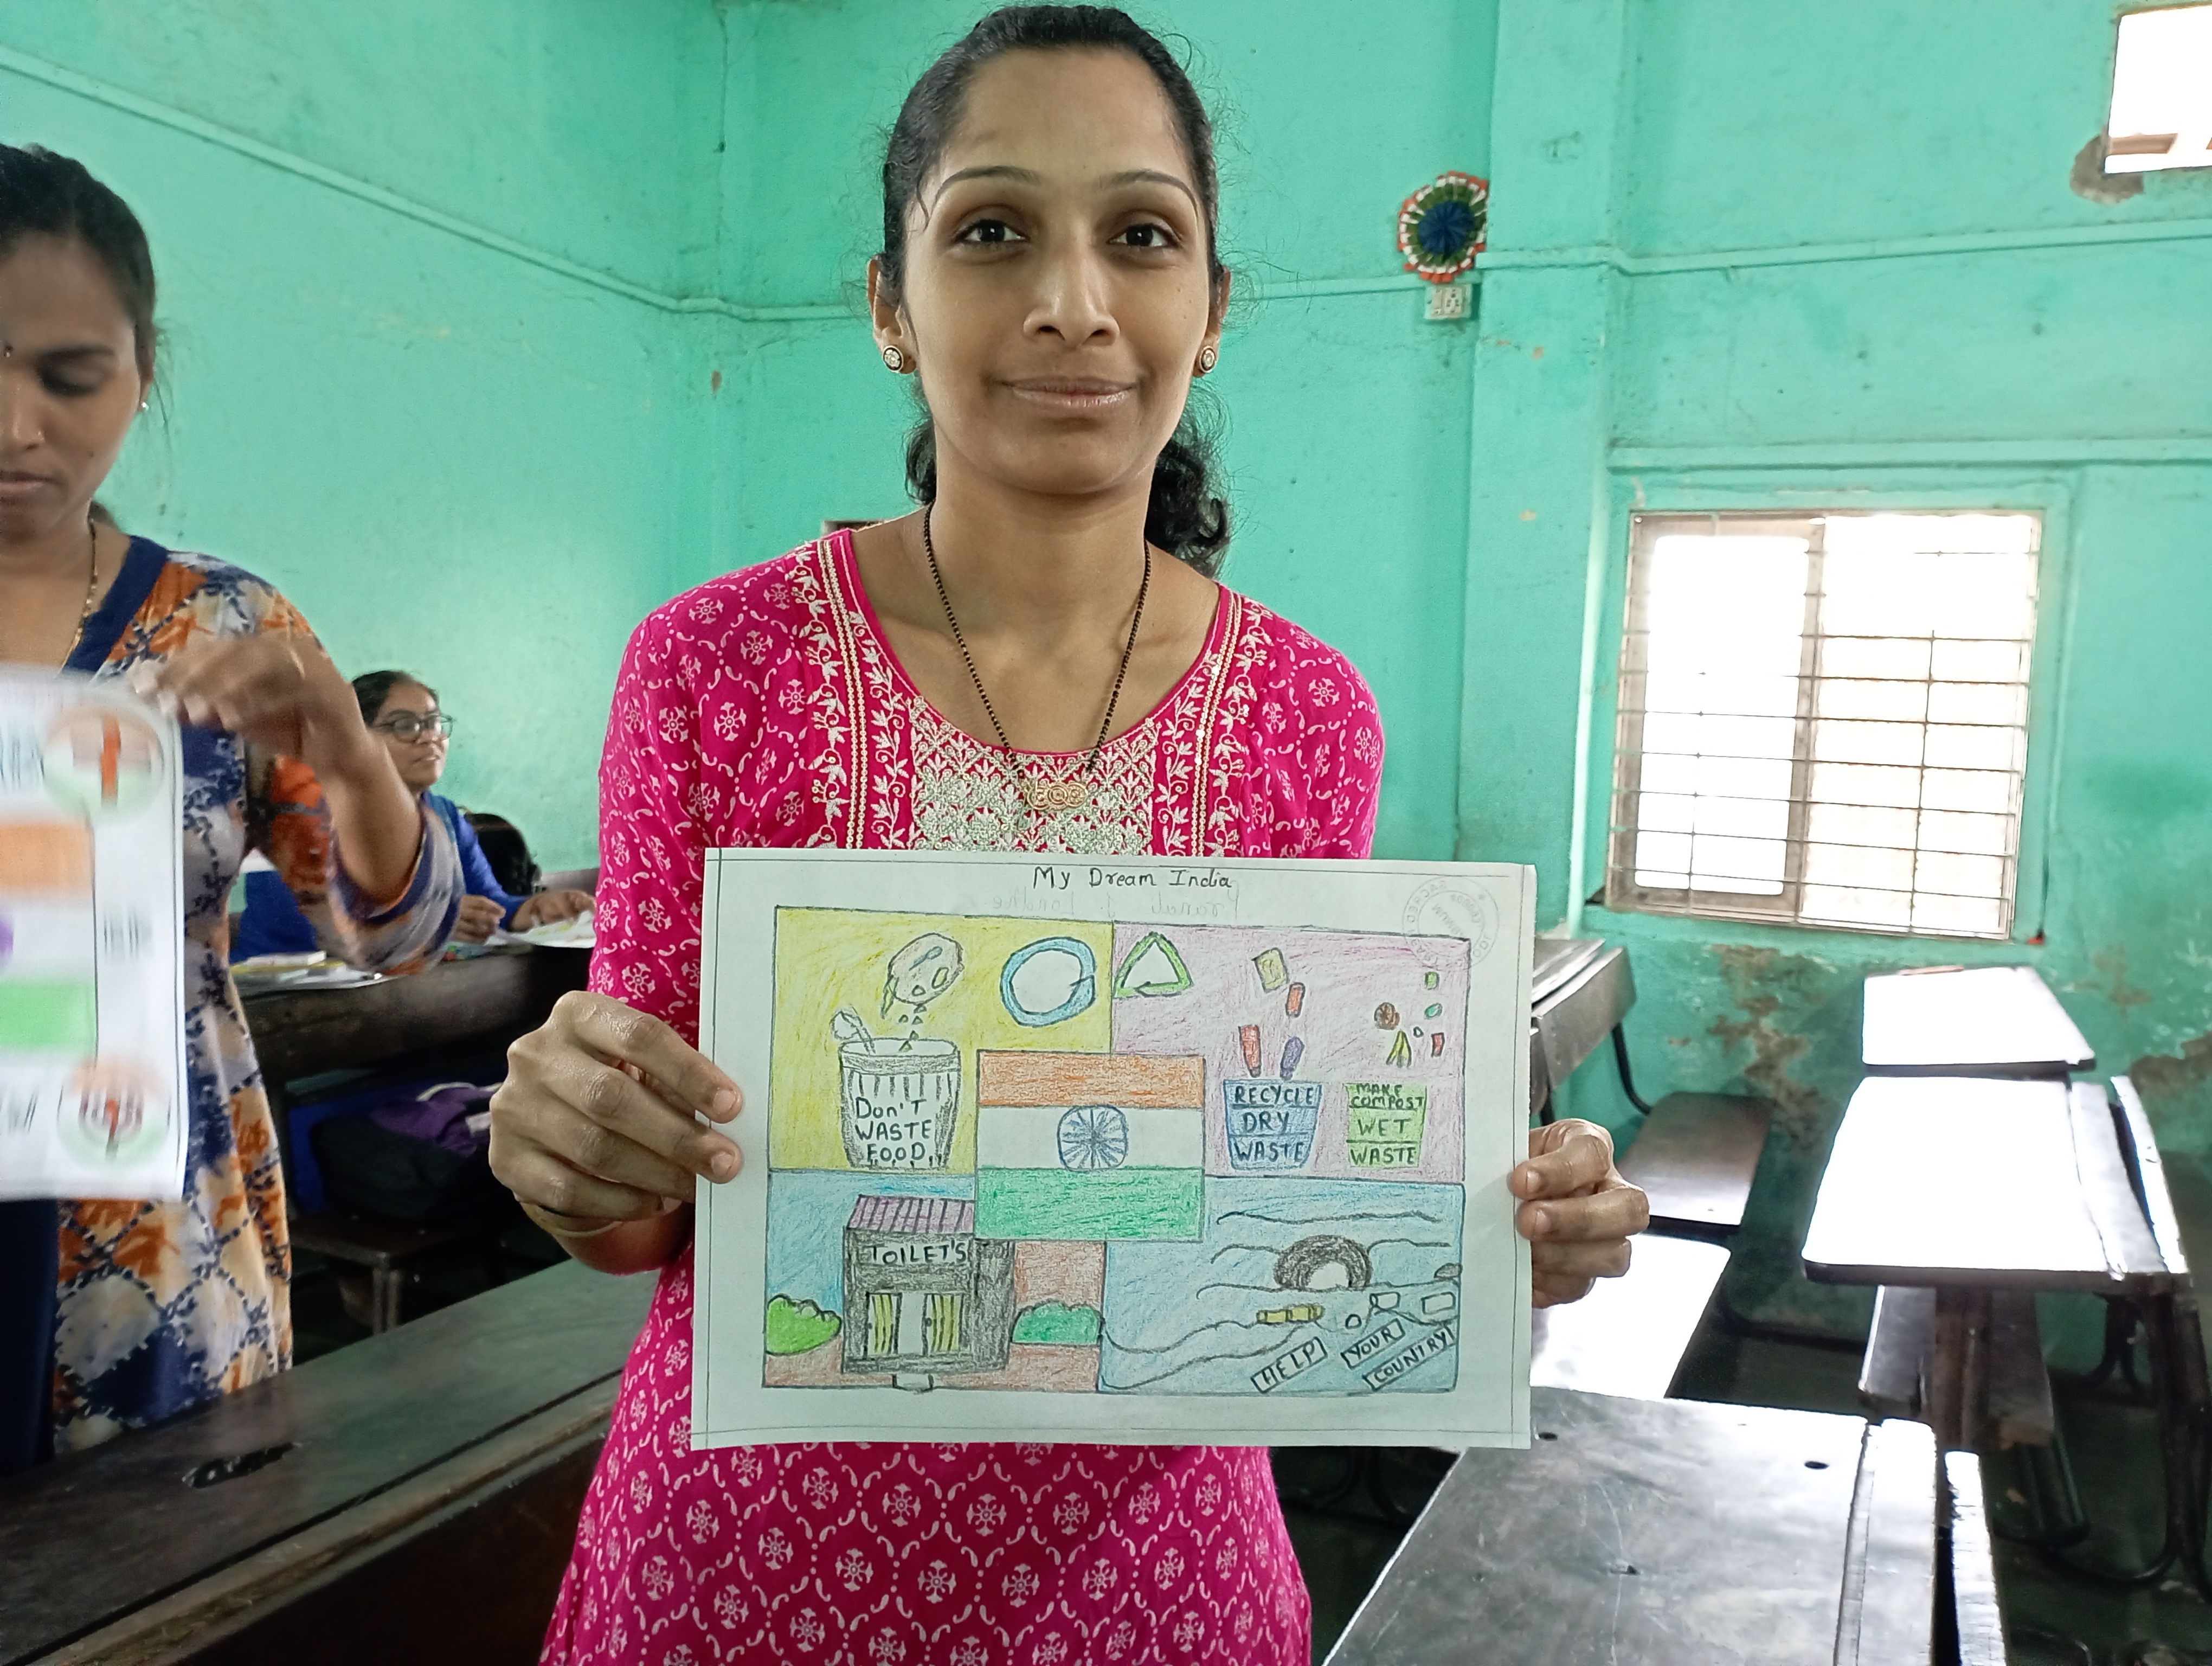 My Dream India
DON'T
WASTE
FOOD
RECYCLE
DRY
WASTE
MAKE
COMPOST
WET
WASTE
TOILET'S
HELP
YOUR
COUNTRY